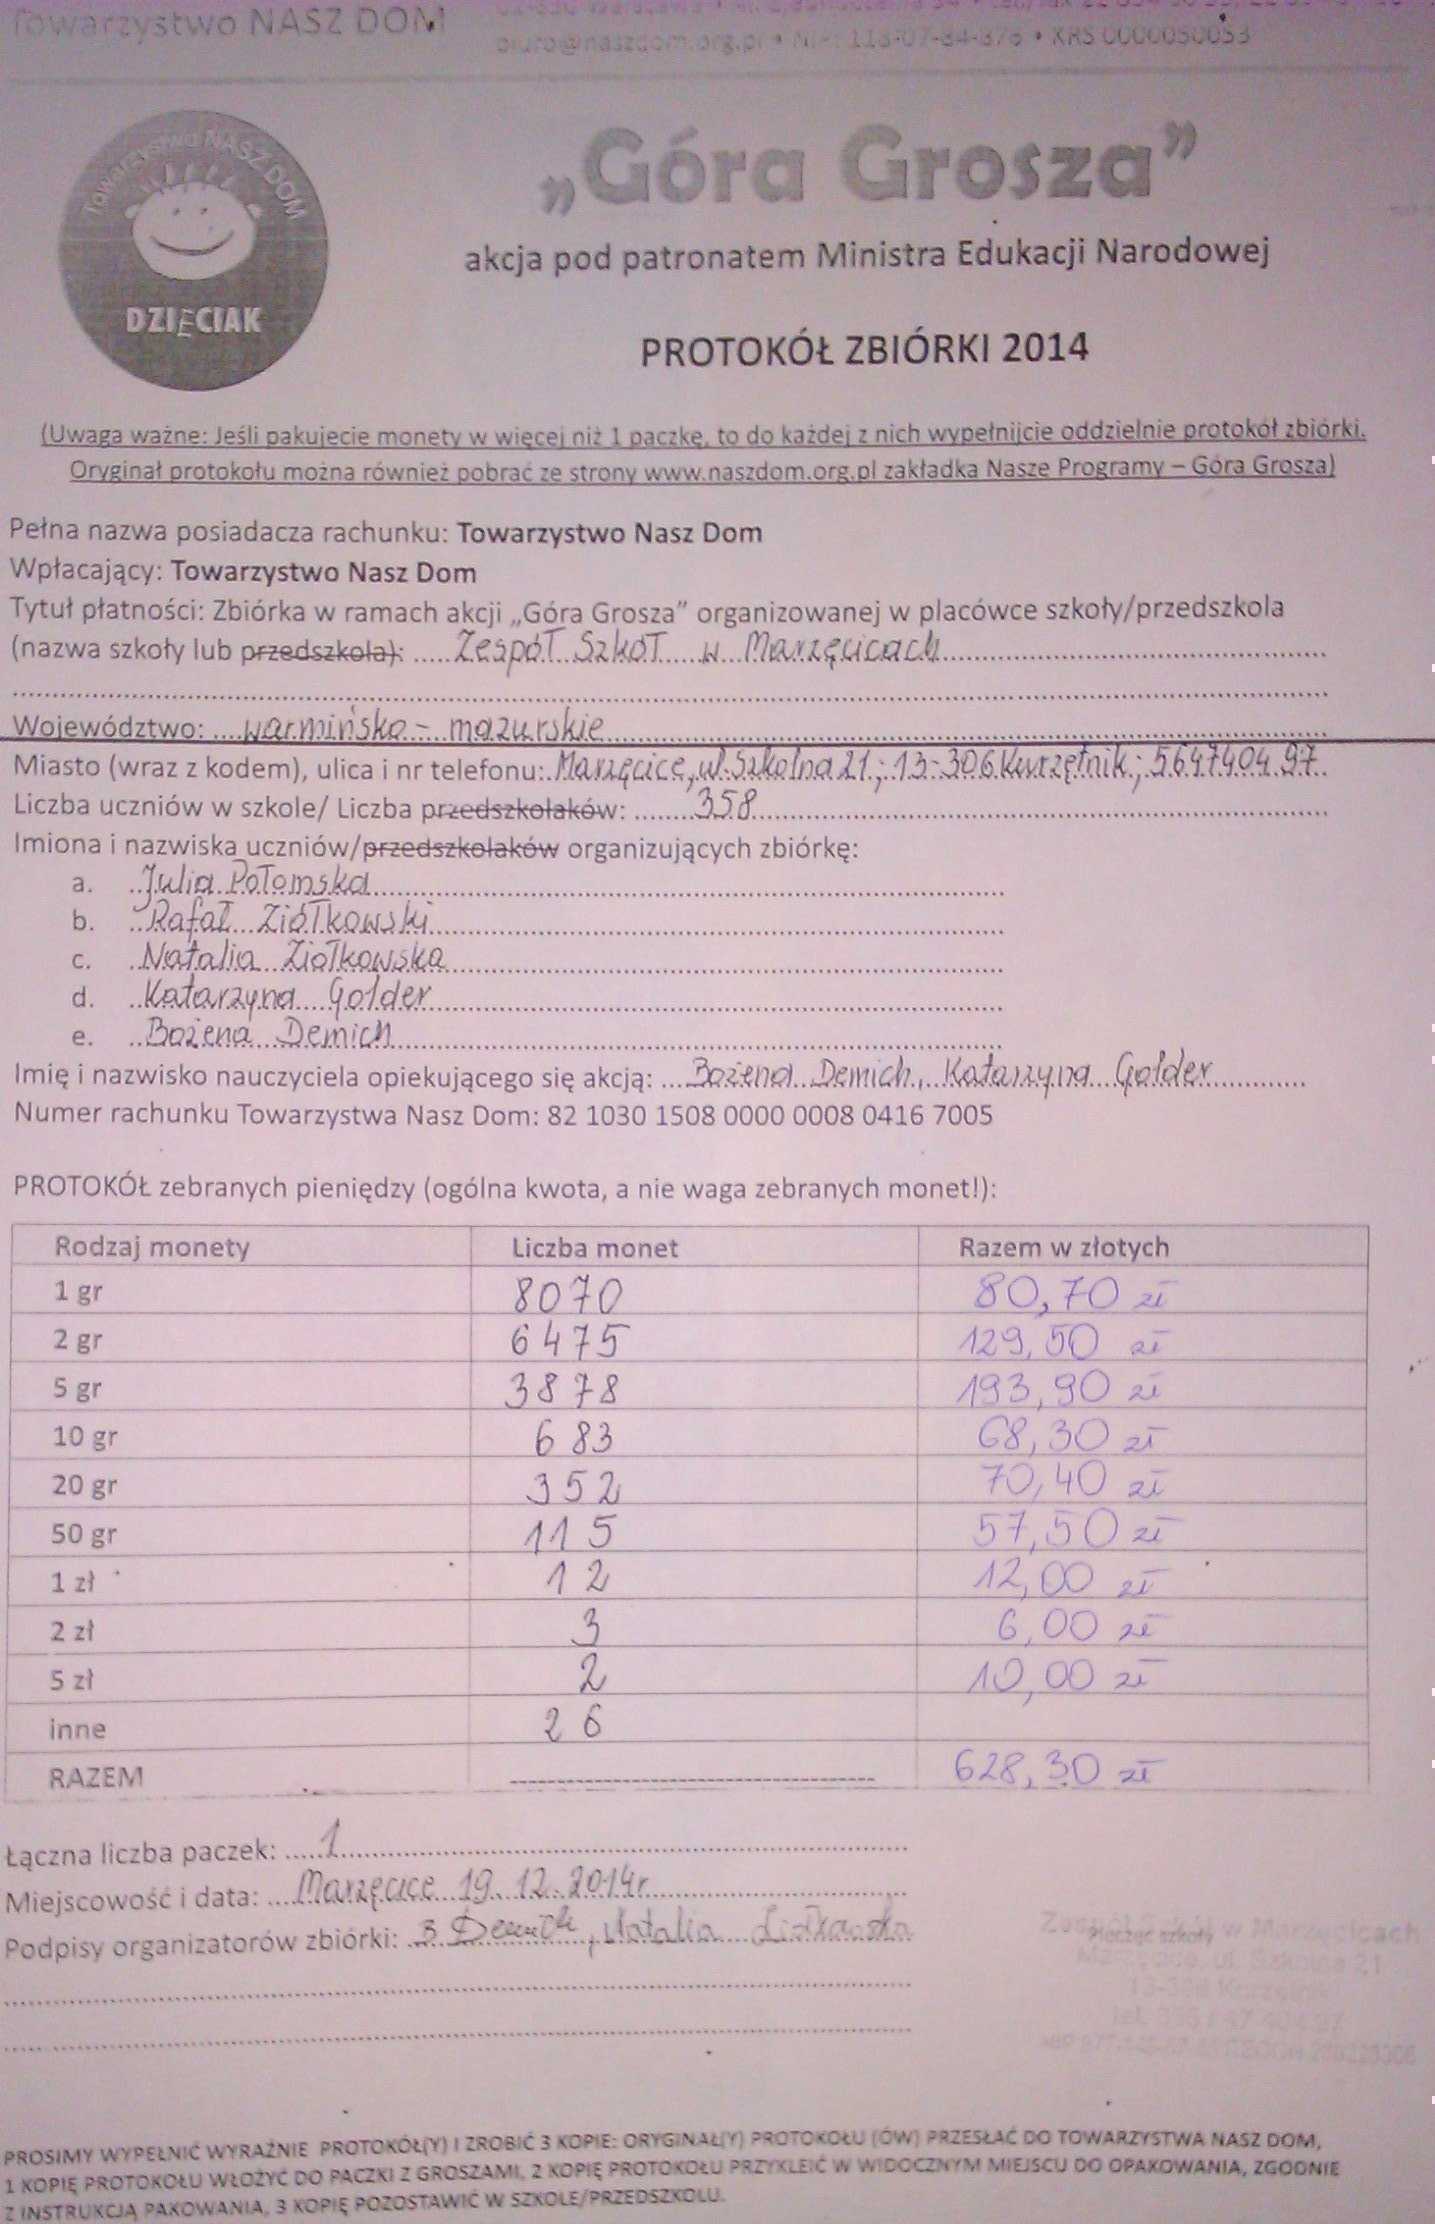 Towarzystwo NASZ DOM
biuro@naszdom.org.pl • NIP: 113-07-84-376 • KRS 0000050053
Towarzystwo NASZ DOM
DZIĘCIAK
„Góra Grosza”
akcja pod patronatem Ministra Edukacji Narodowej
PROTOKÓŁ ZBIÓRKI 2014
(Uwaga ważne: Jeśli pakujecie monety w więcej niż 1 paczkę, to do każdej z nich wypełnijcie oddzielnie protokół zbiórki.
Oryginał protokołu można również pobrać ze strony www.naszdom.org.pl zakładka Nasze Programy – Góra Grosza)
Pełna nazwa posiadacza rachunku: Towarzystwo Nasz Dom
Wpłacający: Towarzystwo Nasz Dom
Tytuł płatności: Zbiórka w ramach akcji „Góra Grosza” organizowanej w placówce szkoły/przedszkola
(nazwa szkoły lub przedszkola): Zespół Szkół w Marzęcicach
Województwo: warmińsko - mazurskie
Miasto (wraz z kodem), ulica i nr telefonu: Marzęcice, ul. Szkolna 21; 13-306 Kurzętnik; 564740497
Liczba uczniów w szkole/ Liczba przedszkolaków: 358
Imiona i nazwiska uczniów/przedszkolaków organizujących zbiórkę:
a. Julia Połomska
b. Rafał Ziółkowski
c. Natalia Ziołkowska
d. Katarzyna Gołder
e. Bożena Demich
Imię i nazwisko nauczyciela opiekującego się akcją: Bożena Demich, Katarzyna Gołder
Numer rachunku Towarzystwa Nasz Dom: 82 1030 1508 0000 0008 0416 7005
PROTOKÓŁ zebranych pieniędzy (ogólna kwota, a nie waga zebranych monet!):
Rodzaj monety Liczba monet Razem w złotych
1 gr 8070 80,70 zł
2 gr 6475 129,50 zł
5 gr 3878 193,90 zł
10 gr 683 68,30 zł
20 gr 352 70,40 zł
50 gr 115 57,50 zł
1 zł 12 12,00 zł
2 zł 3 6,00 zł
5 zł 2 10,00 zł
inne 26
RAZEM 628,30 zł
Łączna liczba paczek: 1
Miejscowość i data: Marzęcice 19.12.2014r
Podpisy organizatorów zbiórki: B Demich, Natalia Ziołkowska
Zespół Szkół w Marzęcicach
Pieczęć szkoły
Marzęcice, ul. Szkolna 21
13-306 Kurzętnik
PROSIMY WYPEŁNIĆ WYRAŹNIE PROTOKÓŁ(Y) I ZROBIĆ 3 KOPIE: ORYGINAŁ(Y) PROTOKOŁU (ÓW) PRZESŁAĆ DO TOWARZYSTWA NASZ DOM,
1 KOPIĘ PROTOKOŁU WŁOŻYĆ DO PACZKI Z GROSZAMI, 2 KOPIĘ PROTOKOŁU PRZYKLEIĆ W WIDOCZNYM MIEJSCU DO OPAKOWANIA, ZGODNIE
Z INSTRUKCJĄ PAKOWANIA, 3 KOPIĘ POZOSTAWIĆ W SZKOLE/PRZEDSZKOLU.